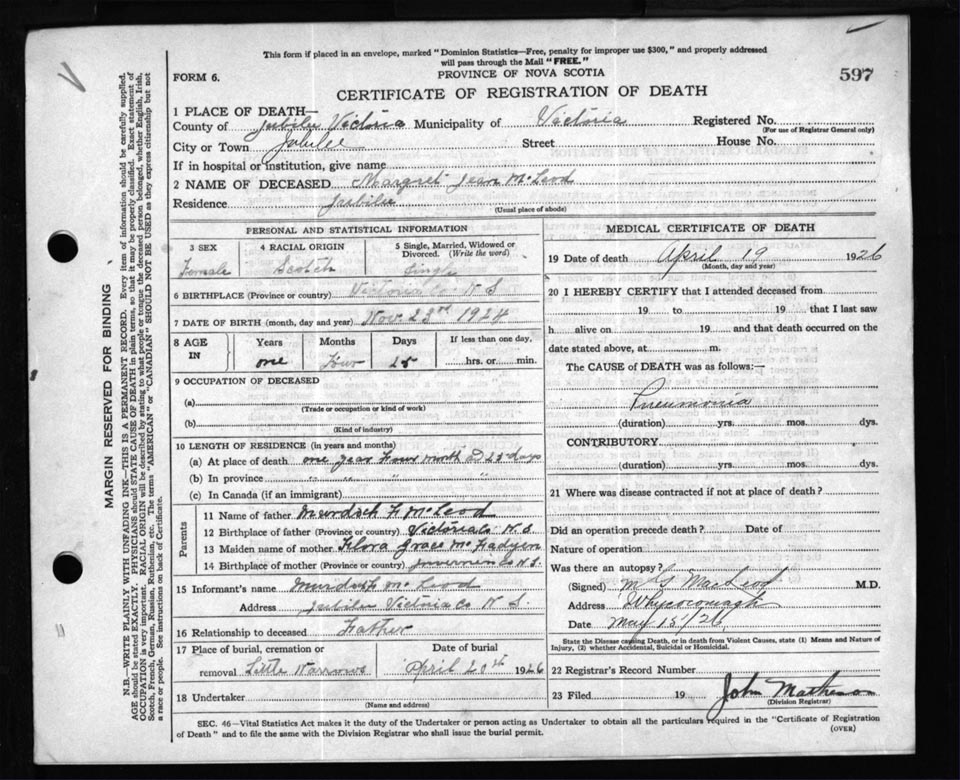 This form if placed in an envelope, marked "Dominion Statistics—Free, penalty for improper use $300," and properly addressed
will pass through the Mail "FREE."
FORM 6.
PROVINCE OF NOVA SCOTIA
597
CERTIFICATE OF REGISTRATION OF DEATH
1 PLACE OF DEATH—
County of Jubilee Victoria Municipality of Victoria Registered No.
(For use of Registrar General only)
City or Town Jubilee Street House No.
If in hospital or institution, give name
2 NAME OF DECEASED Margret Jean McLeod
Residence Jubilee
(Usual place of abode)
PERSONAL AND STATISTICAL INFORMATION
3 SEX 4 RACIAL ORIGIN 5 Single, Married, Widowed or
Divorced. (Write the word)
Female Scotch Single
6 BIRTHPLACE (Province or country) Victoria Co. N S
7 DATE OF BIRTH (month, day and year) Nov. 23rd 1924
8 AGE IN Years Months Days If less than one day,
one Four 25 hrs. or min.
9 OCCUPATION OF DECEASED
(a)
(Trade or occupation or kind of work)
(b)
(Kind of industry)
10 LENGTH OF RESIDENCE (in years and months)
(a) At place of death one year Four month & 25 days
(b) In province " " " "
(c) In Canada (if an immigrant)
Parents
11 Name of father Murdoch F McLeod
12 Birthplace of father (Province or country) Victoria Co. N. S.
13 Maiden name of mother Flora Grace McFadyen
14 Birthplace of mother (Province or country) Inverness Co N.S.
15 Informant's name Murdoch F McLeod
Address Jubilee Victoria Co N S.
16 Relationship to deceased Father
17 Place of burial, cremation or Date of burial
removal Little Narrows April 20th 1926
18 Undertaker
(Name and address)
MEDICAL CERTIFICATE OF DEATH
19 Date of death April 19 1926
(Month, day and year)
20 I HEREBY CERTIFY that I attended deceased from
19 to 19 that I last saw
h alive on 19 and that death occurred on the
date stated above, at m.
The CAUSE of DEATH was as follows:—
Pneumonia
(duration) yrs. mos. dys.
CONTRIBUTORY
(duration) yrs. mos. dys.
21 Where was disease contracted if not at place of death?
Did an operation precede death? Date of
Nature of operation
Was there an autopsy?
(Signed) MacLeod M.D.
Address Whycocomagh
Date May 15/26
State the Disease causing Death, or in death from Violent Causes, state (1) Means and Nature of
Injury, (2) whether Accidental, Suicidal or Homicidal.
22 Registrar's Record Number
23 Filed 19 John Matheson
(Division Registrar)
SEC. 46—Vital Statistics Act makes it the duty of the Undertaker or person acting as Undertaker to obtain all the particulars required in the "Certificate of Registration
of Death" and to file the same with the Division Registrar who shall issue the burial permit.
(OVER)
MARGIN RESERVED FOR BINDING
N.B.—WRITE PLAINLY WITH UNFADING INK—THIS IS A PERMANENT RECORD. Every item of information should be carefully supplied.
AGE should be stated EXACTLY. PHYSICIANS should STATE CAUSE OF DEATH in plain terms, so that it may be properly classified. Exact statement of
OCCUPATION is very important. RACIAL ORIGIN will be described by stating to what people or tongue the deceased person belonged, whether English, Irish,
Scotch, French, German, Russian, Ruthenian, etc. The terms "AMERICAN" or "CANADIAN" SHOULD NOT BE USED as they express citizenship but not
a race or people. See instructions on back of Certificate.